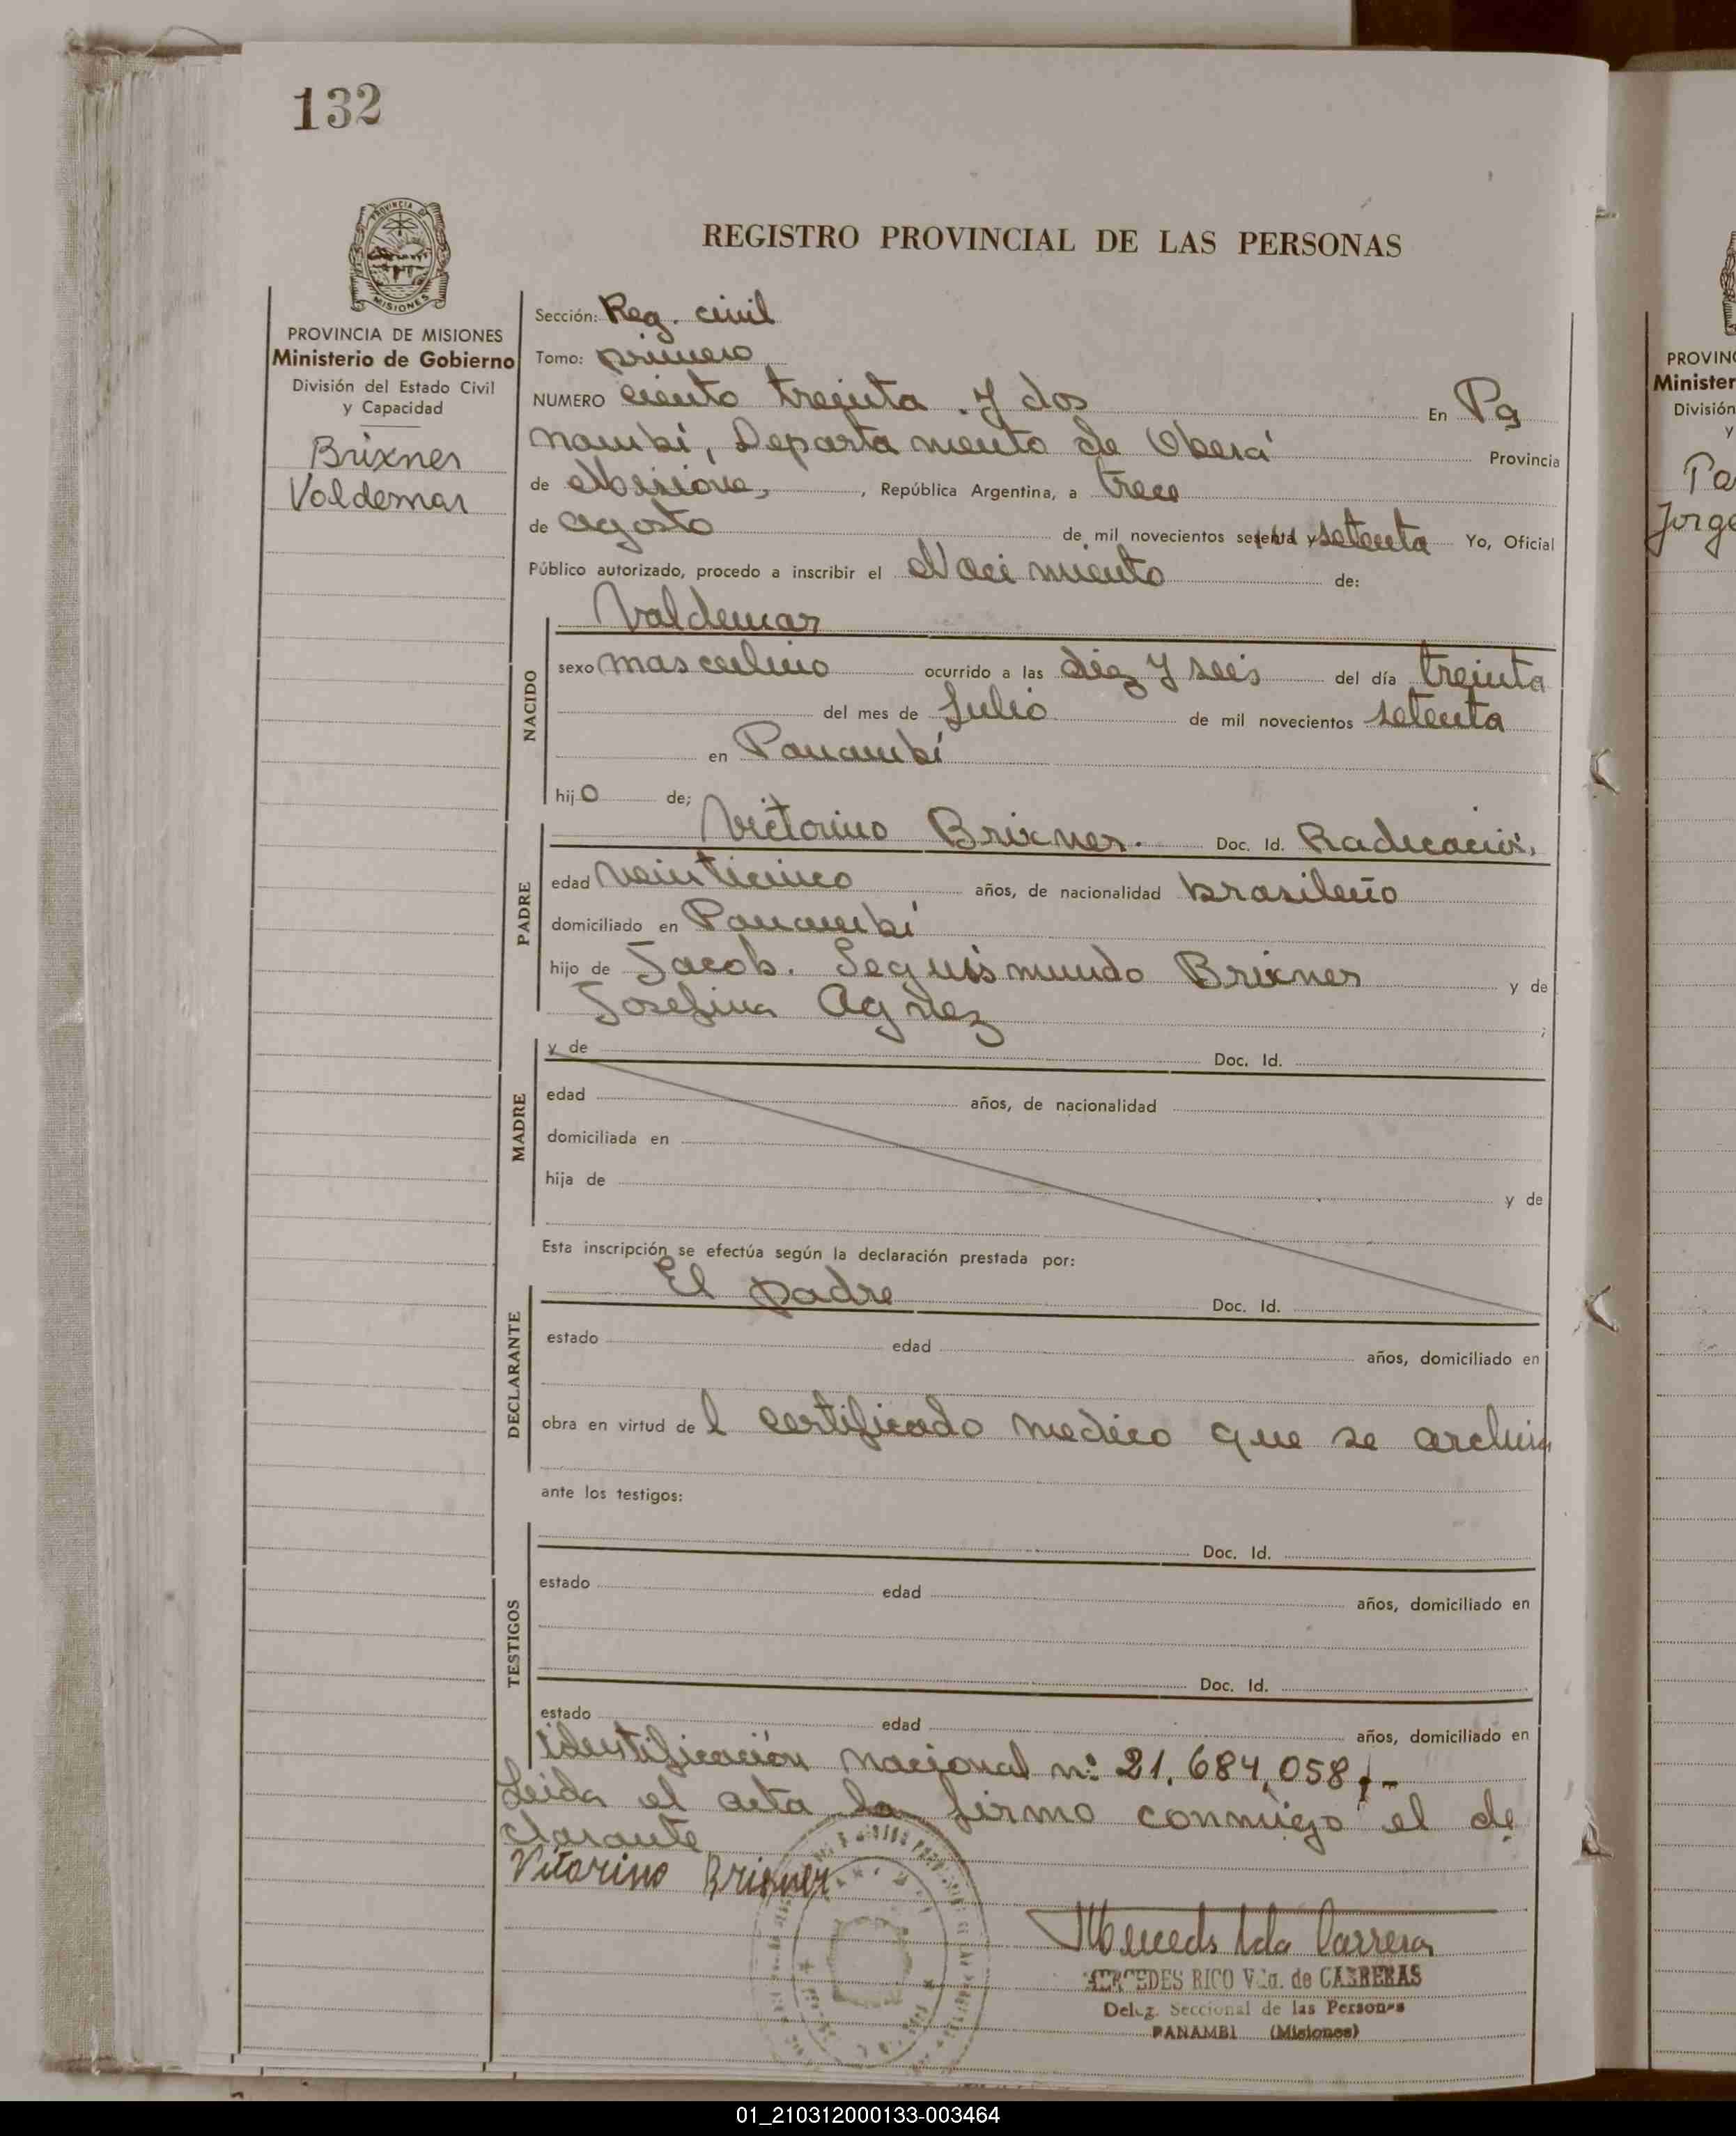 132
PROVINCIA DE
MISIONES
REGISTRO PROVINCIAL DE LAS PERSONAS
PROVINCIA DE MISIONES
Ministerio de Gobierno
División del Estado Civil
y Capacidad
Brixner
Valdemar
Sección: Reg. civil
Tomo: primero
NUMERO ciento treinta y dos En Pa
nambí, Departamento de Oberá Provincia
de Misiones, , República Argentina, a trece
de agosto de mil novecientos sesenta y setenta Yo, Oficial
Público autorizado, procedo a inscribir el Nacimiento de:
NACIDO
Valdemar
sexo masculino ocurrido a las diez y seis del día treinta
del mes de Julio de mil novecientos setenta
en Panambí
hijo de;
PADRE
Victorino Brixner. Doc. Id. Radicación.
edad veinticinco años, de nacionalidad brasileño
domiciliado en Panambí
hijo de Jacob. Seguismundo Brixner y de
Josefina Agnez ;
MADRE
y de Doc. Id.
edad años, de nacionalidad
domiciliada en
hija de y de
Esta inscripción se efectúa según la declaración prestada por:
DECLARANTE
El padre Doc. Id.
estado edad años, domiciliado en
obra en virtud del certificado medico que se archiva
ante los testigos:
TESTIGOS
Doc. Id.
estado edad años, domiciliado en
Doc. Id.
estado edad años, domiciliado en
identificación nacional nº 21.684.058,-
Leida el acta la firmo conmigo el de
clarante
Vitorino Brixner
MERCEDES RICO Vda. de CARRERAS
Deleg. Seccional de las Personas
PANAMBI (Misiones)
PROVINC
Minister
División
y
Pa
Jorge
01_210312000133-003464